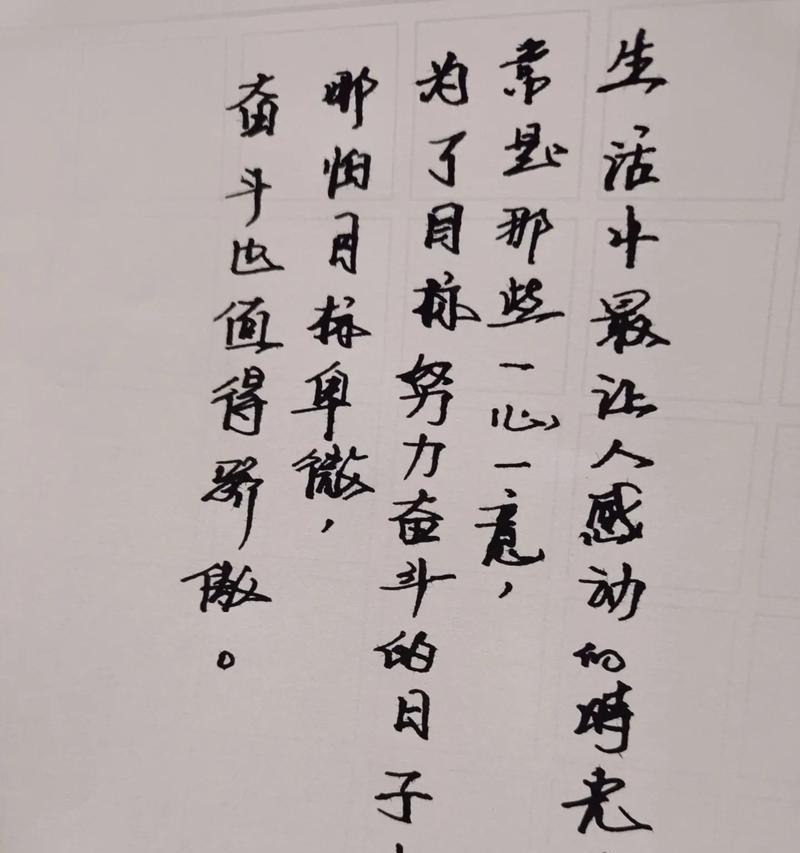 生活中最让人感动的時光
常是那些一心一意，
为了目标努力奋斗的日子
哪怕目标卑微，
奋斗也值得骄傲。